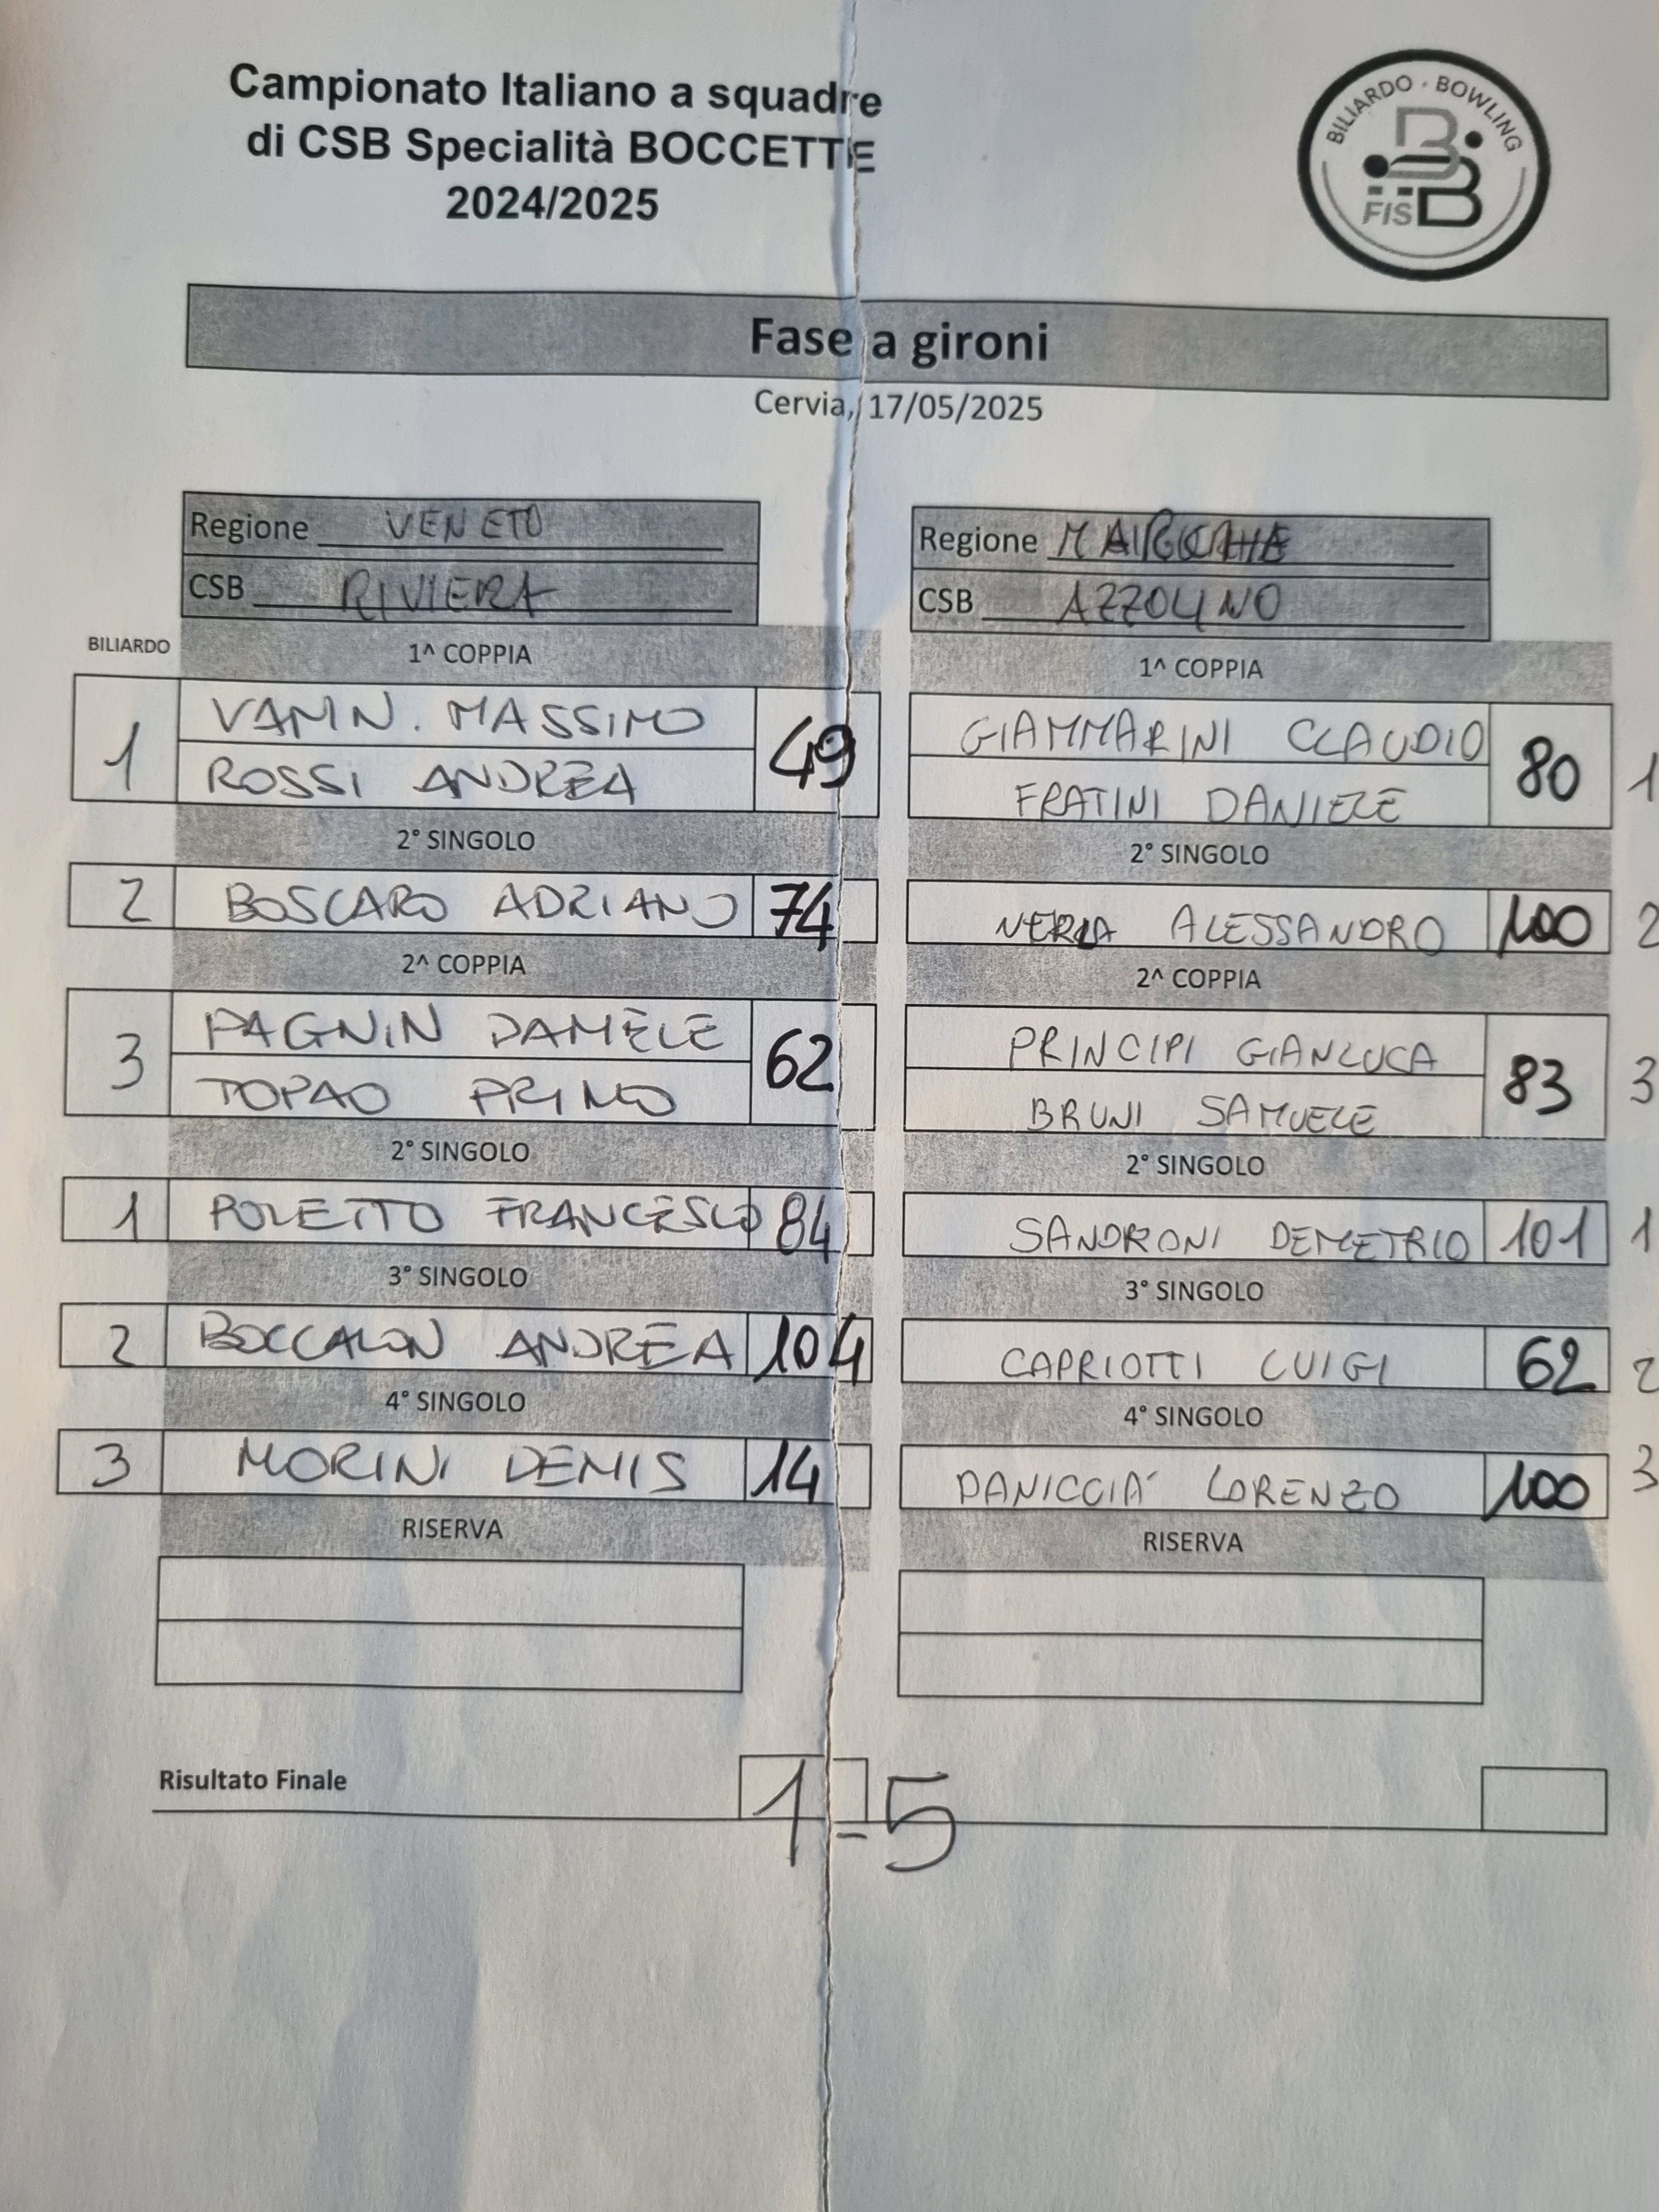 Campionato Italiano a squadre
di CSB Specialità BOCCETTE
2024/2025
BILIARDO · BOWLING
FISBB
Fase a gironi
Cervia, 17/05/2025
Regione VENETO
CSB RIVIERA
Regione MARCHE
CSB AZZOLINO
BILIARDO
1^ COPPIA
1^ COPPIA
1 MASSIMO 49
ROSSI ANDREA
GIAMMARINI CLAUDIO 80 1
FRATINI DANIELE
2° SINGOLO
2° SINGOLO
2 BOSCARO ADRIANO 74
ALESSANDRO 100 2
2^ COPPIA
2^ COPPIA
3 PAGNIN DANIELE 62
TOPAO PRIMO
PRINCIPI GIANLUCA 83 3
BRUNI SAMUELE
2° SINGOLO
2° SINGOLO
1 POLETTO FRANCESCO 84
SANDRONI DEMETRIO 101 1
3° SINGOLO
3° SINGOLO
2 BOCCALON ANDREA 104
CAPRIOTTI LUIGI 62 2
4° SINGOLO
4° SINGOLO
3 MORINI DEMIS 14
PANICCIÀ LORENZO 100 3
RISERVA
RISERVA
Risultato Finale 1-5